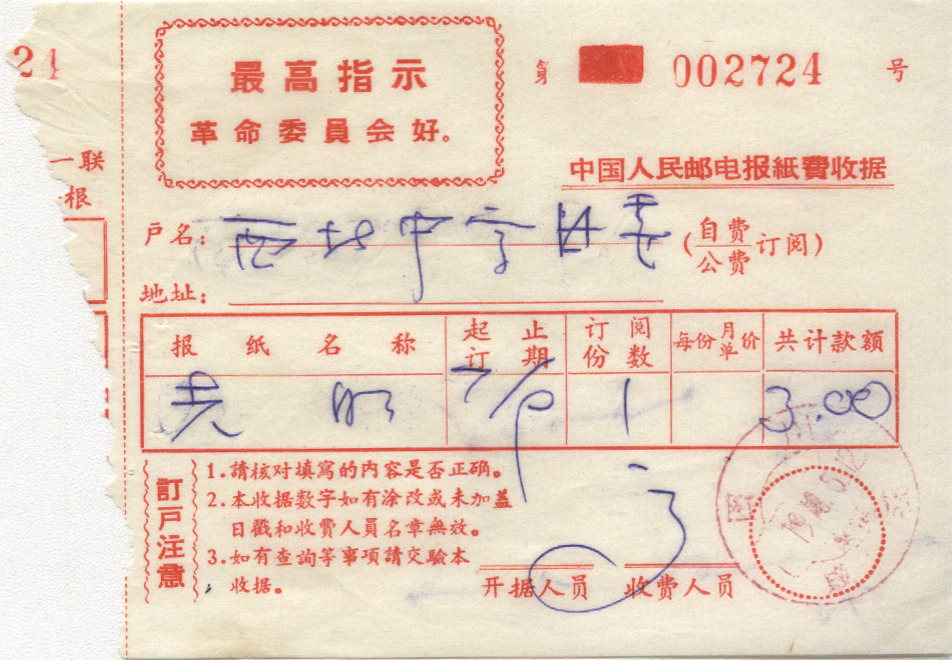 24
一联
根
最高指示
革命委員会好。
第 002724 号
中国人民邮电报紙費收据
户名: (自费
公费 订阅)
地址:
报纸名称 起止
订期 订阅
份数 每份月
单价 共计款额
光明 7/ 1 3.00
訂戸注意
1.請核对填寫的内容是否正确。
2.本收据数字如有涂改或未加蓋
日戳和收费人員名章無效。
3.如有查詢等事項請交驗本
收据。
开据人员 收费人员